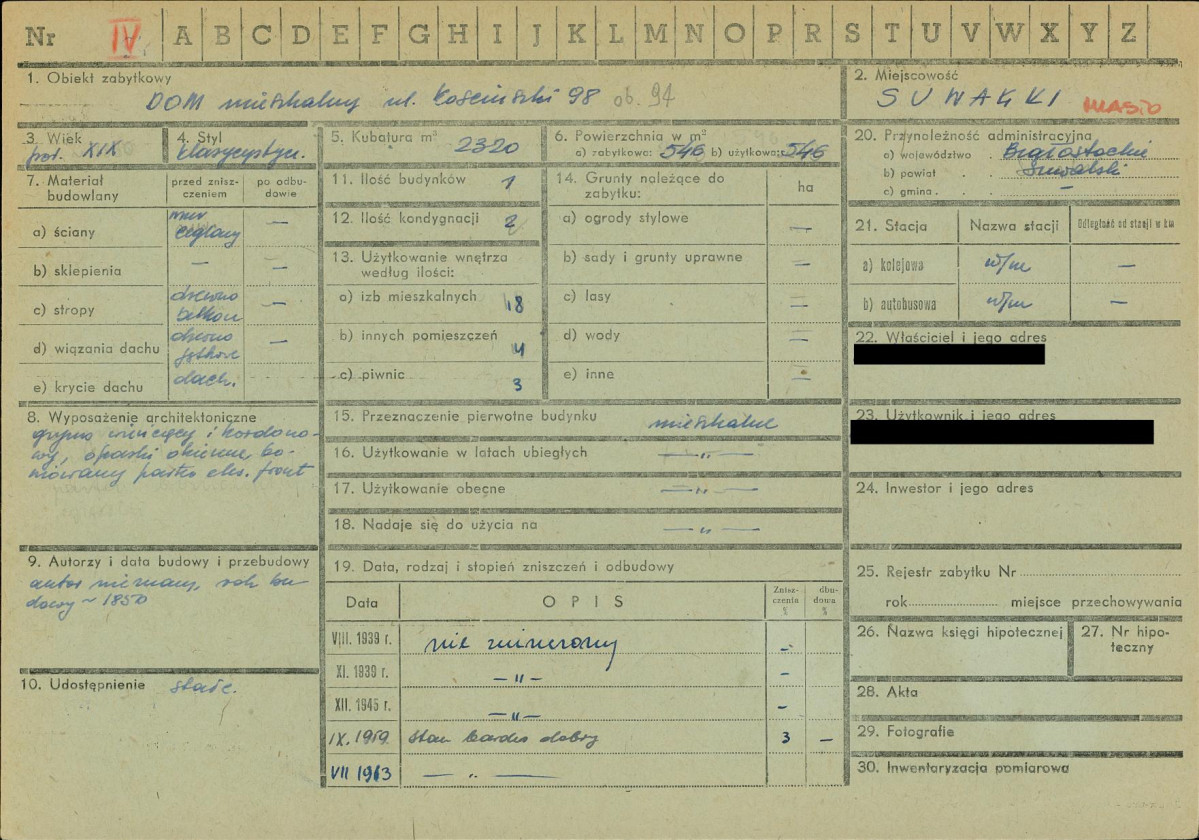 Nr IV A B C D E F G H I J K L M N O P R S T U V W X Y Z
1. Obiekt zabytkowy
DOM mieszkalny ul. Kościuszki 98 ob. 94
2. Miejscowość
SUWAŁKI MIASTO
3. Wiek
poł. XIX
4. Styl
klasycystycz.
5. Kubatura m³ 2320
6. Powierzchnia w m²
a) zabytkowa: 546 b) użytkowa: 546
7. Materiał budowlany
przed zniszczeniem
po odbudowie
a) ściany mur ceglany —
b) sklepienia — —
c) stropy drewno belkow —
d) wiązania dachu drewno jętkowe —
e) krycie dachu dach.
8. Wyposażenie architektoniczne
gzyms wieńczący i kordono-
wy, opaski okienne bo-
niowany parter elew. front
9. Autorzy i data budowy i przebudowy
autor nieznany, rok bu-
dowy ~ 1850
10. Udostępnienie stałe.
11. Ilość budynków 1
12. Ilość kondygnacji 2
13. Użytkowanie wnętrza
według ilości:
a) izb mieszkalnych 18
b) innych pomieszczeń 4
c) piwnic 3
14. Grunty należące do
zabytku:
ha
a) ogrody stylowe —
b) sady i grunty uprawne —
c) lasy —
d) wody —
e) inne —
15. Przeznaczenie pierwotne budynku mieszkalne
16. Użytkowanie w latach ubiegłych — „ —
17. Użytkowanie obecne — „ —
18. Nadaje się do użycia na — „ —
19. Data, rodzaj i stopień zniszczeń i odbudowy
Data
OPIS
Zniszczenia %
dbudowa %
VIII. 1939 r. nie zniszczony —
XI. 1939 r. — „ — —
XII. 1945 r. — „ — —
IX. 1959 Stan bardzo dobry 3 —
VII 1963 — „ —
20. Przynależność administracyjna
a) województwo Białostockie
b) powiat Suwalski
c) gmina —
21. Stacja
Nazwa stacji
Odległość od stacji w km
a) kolejowa w/m —
b) autobusowa w/m —
22. Właściciel i jego adres
23. Użytkownik i jego adres
24. Inwestor i jego adres
25. Rejestr zabytku Nr
rok miejsce przechowywania
26. Nazwa księgi hipotecznej
27. Nr hipo-
teczny
28. Akta
29. Fotografie
30. Inwentaryzacja pomiarowa